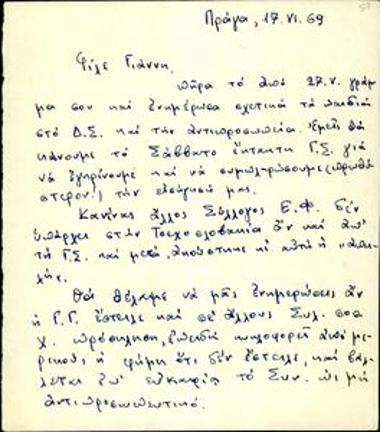 Πράγα, 17.VI.69
Φίλε Γιάννη,
πῆρα τό ἀπό 27.V. γράμ
μα σου καί ἐνημέρωσα σχετικά τά παιδιά
στό Δ.Σ. καί τήν ἀντιπροσωπεία. Ἐμεῖς θά
κάνουμε τό Σάββατο ἔκτακτη Γ.Σ. γιά
νά ἐγκρίνουμε καί νά συμπληρώσουμε
στερον!) τήν εἰσήγησή μας.
Κανένας ἄλλος Σύλλογος Ε.Φ. δέν
ὑπάρχει στήν Τσεχοσλοβακία ἄν καί ἀπ'
τή Γ.Σ. καί μετά, ἀκούστηκε κι αὐτή ἡ "ἀπει
λή".
Θά θέλαμε νά μᾶς ἐνημερώσεις ἄν
ἡ Γ.Γ. ἔστειλε καί σέ ἄλλους Συλ. σας
χ. πρόσκληση, ἐπειδή κυκλοφορεῖ ἀπό με
ρικούς, ἡ φήμη ὅτι δέν ἔστειλε, καί βάλ
λεται ἐπ' εὐκαιρία τό Συν. ὡς μή
ἀντιπροσωπευτικό.